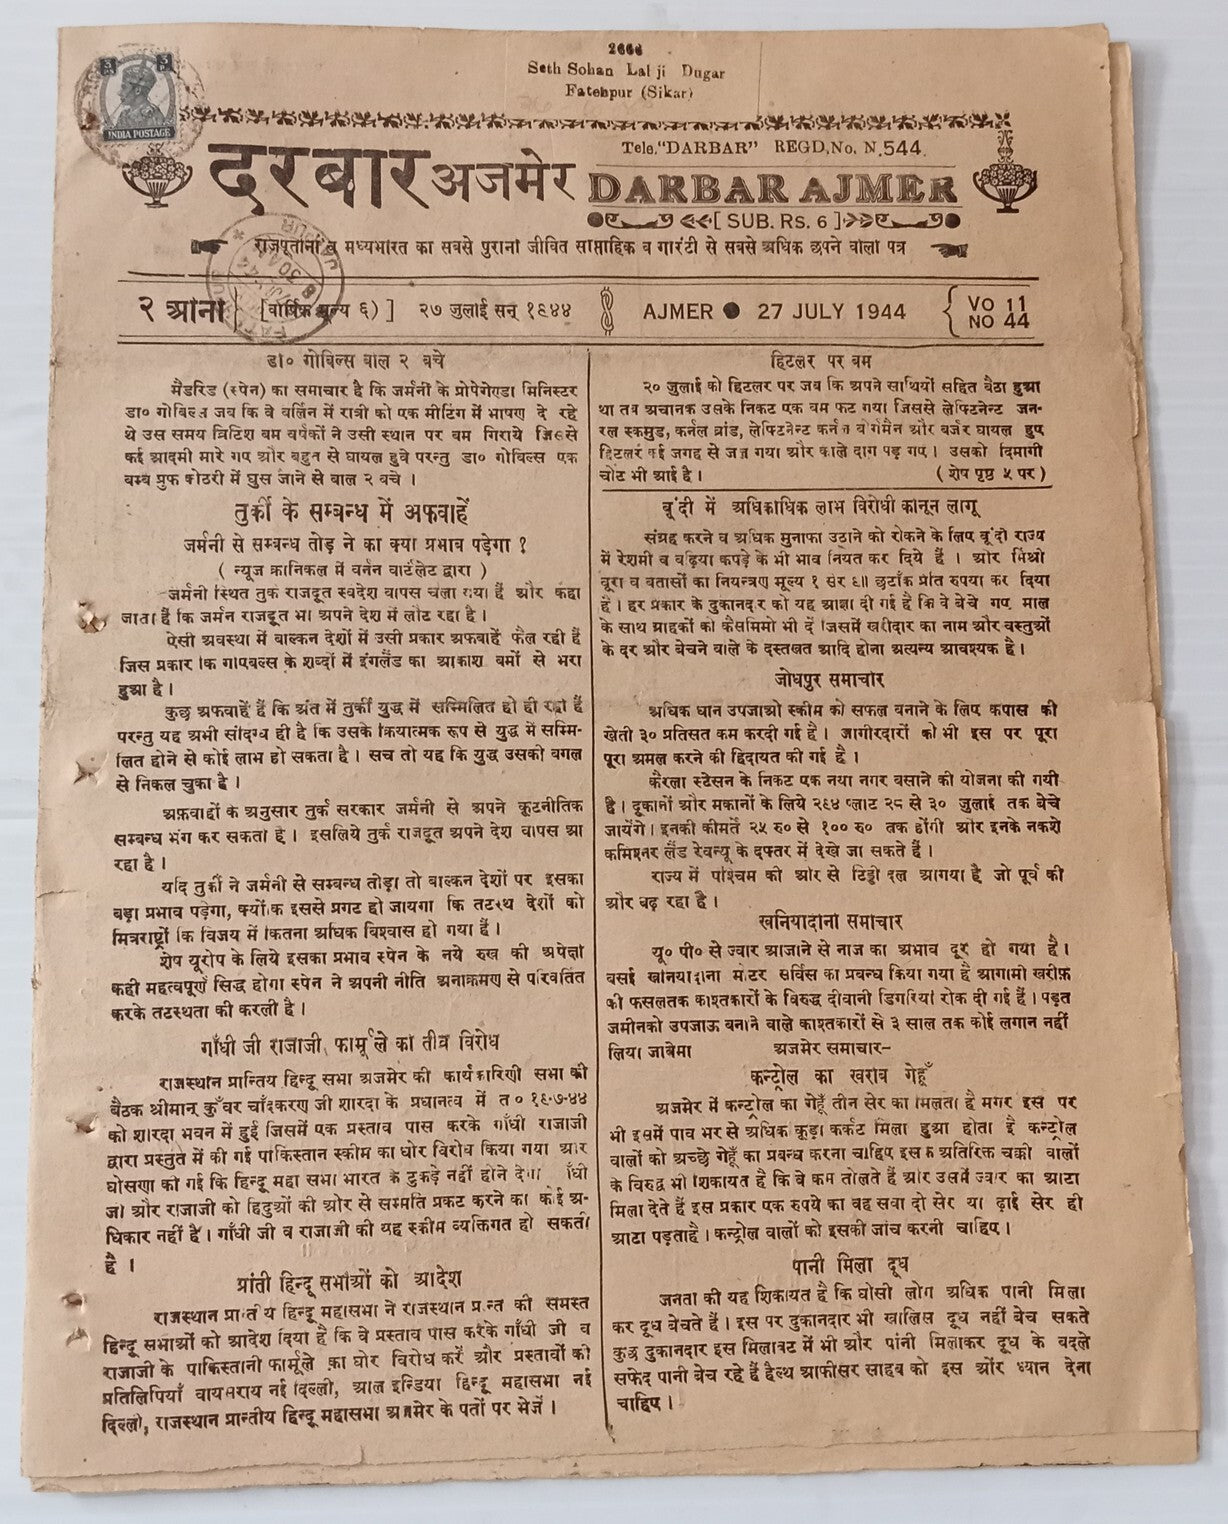 2666
Seth Sohan Lal ji Dugar
Fatehpur (Sikar)
INDIA POSTAGE
Tele."DARBAR" REGD,No. N.544.
दरबार अजमेर DARBAR AJMER
[ SUB. Rs. 6 ]
राजपूताना व मध्यभारत का सबसे पुराना जीवित साप्ताहिक व गारंटी से सबसे अधिक छपने वाला पत्र
२ आना [वार्षिक मूल्य ६) ] २७ जुलाई सन् १९४४ AJMER ● 27 JULY 1944 VO 11
NO 44
डा० गोबिल्स बाल २ बचे
मैडरिड (स्पेन) का समाचार है कि जर्मनी के प्रोपेगेण्डा मिनिस्टर
डा० गोबिल्स जब कि वे बर्लिन में रात्री को एक मीटिंग में भाषण दे रहे
थे उस समय ब्रिटिश बम वर्षकों ने उसी स्थान पर बम गिराये जिससे
कई आदमी मारे गए और बहुत से घायल हुवे परन्तु डा० गोबिल्स एक
बम्ब प्रुफ कोठरी में घुस जाने से बाल २ बचे ।
तुर्की के सम्बन्ध में अफवाहें
जर्मनी से सम्बन्ध तोड़ ने का क्या प्रभाव पड़ेगा ?
( न्यूज क्रानिकल में वर्नन वार्टलेट द्वारा )
जर्मनी स्थित तुर्क राजदूत स्वदेश वापस चला गया है और कहा
जाता है कि जर्मन राजदूत भी अपने देश में लौट रहा है ।
ऐसी अवस्था में बाल्कन देशों में उसी प्रकार अफबाहें फैल रही हैं
जिस प्रकार कि गोएबल्स के शब्दों में इंगलैंड का आकाश बमों से भरा
हुआ है ।
कुछ अफवाहें हैं कि अंत में तुर्की युद्ध में सम्मिलित हो ही रहा है
परन्तु यह अभी संदिग्ध ही है कि उसके क्रियात्मक रूप से युद्ध में सम्मि-
लित होने से कोई लाभ हो सकता है । सच तो यह कि युद्ध उसकी बगल
से निकल चुका है ।
अफ़वाहों के अनुसार तुर्क सरकार जर्मनी से अपने कूटनीतिक
सम्बन्ध भंग कर सकता है । इसलिये तुर्क राजदूत अपने देश वापस आ
रहा है ।
यदि तुर्की ने जर्मनी से सम्बन्ध तोड़ा तो बाल्कन देशों पर इसका
बड़ा प्रभाव पड़ेगा, क्योंकि इससे प्रगट हो जायगा कि तटस्थ देशों को
मित्रराष्ट्रों कि विजय में कितना अधिक विश्वास हो गया है ।
शेष यूरोप के लिये इसका प्रभाव स्पेन के नये रुख की अपेक्षा
कही महत्वपूर्ण सिद्ध होगा स्पेन ने अपनी नीति अनाक्रमण से परिवर्तित
करके तटस्थता की करली है ।
गाँधी जी राजाजी फार्मूले का तीव्र विरोध
राजस्थान प्रान्तिय हिन्दू सभा अजमेर की कार्यकारिणी सभा की
बैठक श्रीमान् कुँवर चाँदकरण जी शारदा के प्रधानत्व में त० १९-७-४४
को शारदा भवन में हुई जिसमें एक प्रस्ताव पास करके गाँधी राजाजी
द्वारा प्रस्तुत में की गई पाकिस्तान स्कीम का घोर विरोध किया गया और
घोसणा की गई कि हिन्दू महा सभा भारत के टुकड़े नहीं होने देगी गाँधी
जी और राजाजी को हिदुओं की ओर से सम्मति प्रकट करने का कोई अ-
धिकार नहीं है । गाँधी जी व राजाजी की यह स्कीम व्यक्तिगत हो सकती
है ।
प्रांती हिन्दू सभाओं को आदेश
राजस्थान प्रान्तीय हिन्दू महासभा ने राजस्थान प्रान्त की समस्त
हिन्दू सभाओं को आदेश दिया है कि वे प्रस्ताव पास करके गाँधी जी व
राजाजी के पाकिस्तानी फार्मूले का घोर विरोध करें और प्रस्तावों की
प्रतिलिपियाँ वायसराय नई दिल्ली, आल इन्डिया हिन्दू महासभा नई
दिल्ली, राजस्थान प्रान्तीय हिन्दू महासभा अजमेर के पतों पर भेजें ।
हिटलर पर बम
२० जुलाई को हिटलर पर जब कि अपने साथियों सहित बैठा हुआ
था तब अचानक उसके निकट एक बम फट गया जिससे लेफ्टिनेन्ट जन-
रल स्कमुड, कर्नल ब्रांड, लेफ्टिनेन्ट कर्नल बोर्गमैन और बर्जर घायल हुए
हिटलर कई जगह से जल गया और काले दाग पड़ गए । उसको दिमागी
चोट भी आई है । ( शेष पृष्ठ ५ पर )
बूंदी में अधिकाधिक लाभ विरोधी कानून लागू
संग्रह करने व अधिक मुनाफा उठाने को रोकने के लिए बूंदी राज्य
में रेशमी व बढ़िया कपड़े के भी भाव नियत कर दिये हैं । और मिश्री
बूरा व बतासों का नियन्त्रण मूल्य १ सेर ९॥ छटाँक प्रति रुपया कर दिया
है । हर प्रकार के दुकानदार को यह आज्ञा दी गई है कि वे बेचे गए माल
के साथ ग्राहकों को कैसमिमो भी दें जिसमें खरीदार का नाम और वस्तुओं
के दर और बेचने वाले के दस्तखत आदि होना अत्यन्य आवश्यक है ।
जोधपुर समाचार
अधिक धान उपजाओ स्कीम को सफल बनाने के लिए कपास की
खेती ३० प्रतिसत कम करदी गई है । जागीरदारों को भी इस पर पूरा
पूरा अमल करने की हिदायत की गई है ।
कैरला स्टेसन के निकट एक नया नगर बसाने की योजना की गयी
है । दूकानों और मकानों के लिये २९४ प्लाट २८ से ३० जुलाई तक बेचे
जायेंगे । इनकी कीमतें २५ रु० से १०० रु० तक होंगी और इनके नकशे
कमिश्नर लैंड रेवन्यू के दफ्तर में देखे जा सकते हैं ।
राज्य में पश्चिम की ओर से टिड्डी दल आगया है जो पूर्व की
और बढ़ रहा है ।
खनियादाना समाचार
यू० पी० से ज्वार आजाने से नाज का अभाव दूर हो गया है ।
बसई खनियादाना मोटर सर्विस का प्रबन्ध किया गया है आगामी खरीफ़
की फसलतक काश्तकारों के विरुद्ध दीवानी डिगरियां रोक दी गई हैं । पड़त
जमीनको उपजाऊ बनाने वाले काश्तकारों से ३ साल तक कोई लगान नहीं
लिया जावेगा अजमेर समाचार–
कन्ट्रोल का खराब गेहूँ
अजमेर में कन्ट्रोल का गेहूँ तीन सेर का मिलता है मगर इस पर
भी इसमें पाव भर से अधिक कूड़ा कर्कट मिला हुआ होता है कन्ट्रोल
वालों को अच्छे गेहूँ का प्रबन्ध करना चाहिए इसके अतिरिक्त चक्की वालों
के विरुद्ध भी शिकायत है कि वे कम तोलते हैं और उसमें ज्वार का आटा
मिला देते हैं इस प्रकार एक रुपये का वह सवा दो सेर या ढ़ाई सेर ही
आटा पड़ताहै । कन्ट्रोल वालों को इसकी जांच करनी चाहिए ।
पानी मिला दूध
जनता की यह शिकायत है कि घोसी लोग अधिक पानी मिला
कर दूध बेचते हैं । इस पर दुकानदार भी खालिस दूध नहीं बेच सकते
कुछ दुकानदार इस मिलावट में भी और पांनी मिलाकर दूध के बदले
सफेद पानी बेच रहे हैं हैल्थ आफीसर साहब को इस ओर ध्यान देना
चाहिए ।